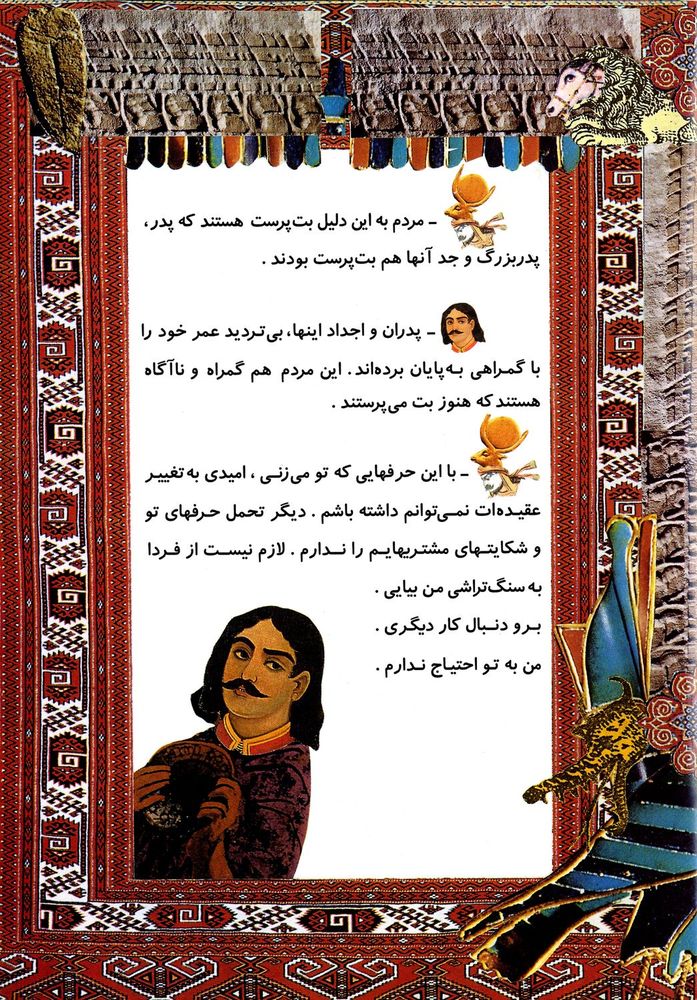 ـ مردم به این دلیل بت‌پرست هستند که پدر،
پدربزرگ و جد آنها هم بت‌پرست بودند .
ـ پدران و اجداد اینها، بی‌تردید عمر خود را
با گمراهی به‌پایان برده‌اند . این مردم هم گمراه و ناآگاه
هستند که هنوز بت می‌پرستند .
ـ با این حرفهایی که تو می‌زنی ، امیدی به تغییر
عقیده‌ات نمی‌توانم داشته باشم . دیگر تحمل حرفهای تو
و شکایتهای مشتریهایم را ندارم . لازم نیست از فردا
به سنگ‌تراشی من بیایی .
برو دنبال کار دیگری .
من به تو احتیاج ندارم .